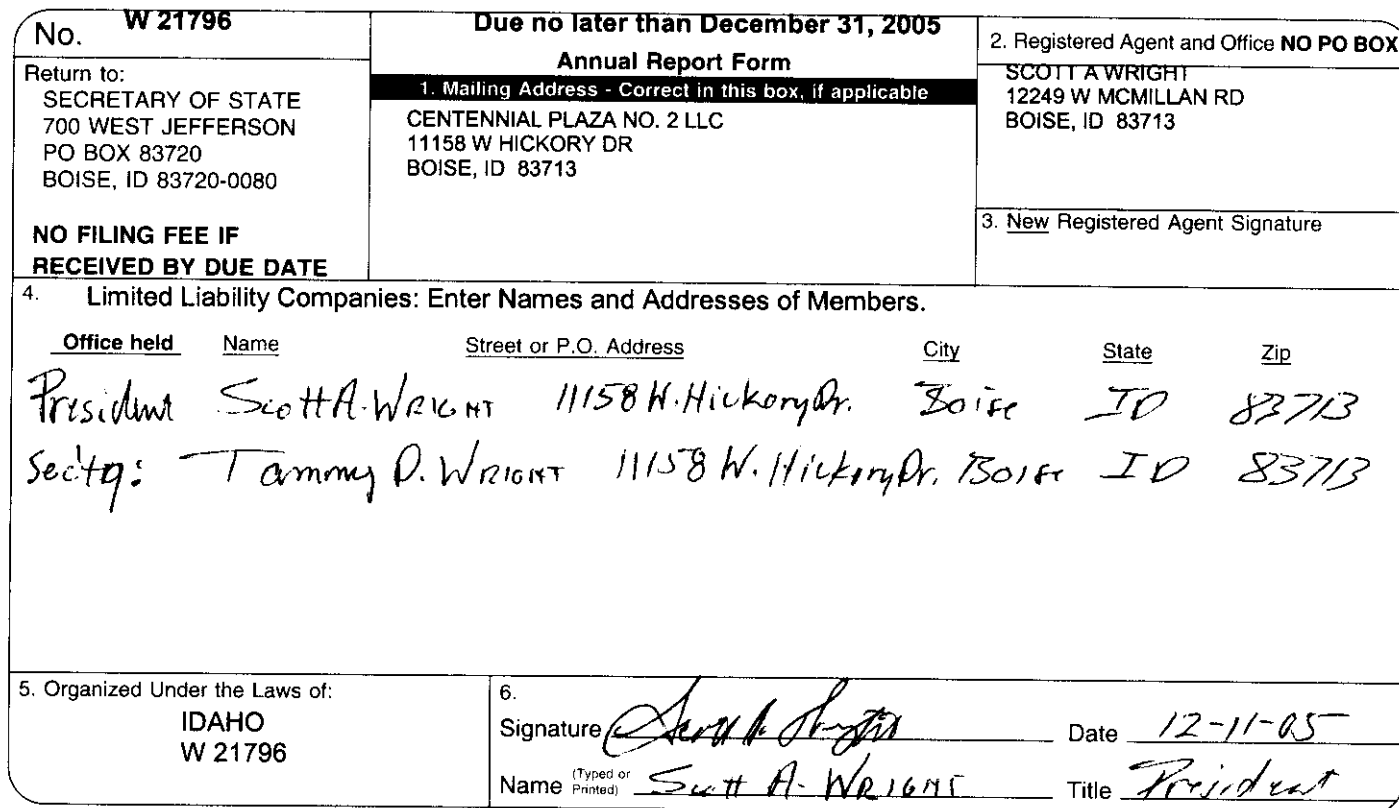 No. W 21796
Return to:
SECRETARY OF STATE
700 WEST JEFFERSON
PO BOX 83720
BOISE, ID 83720-0080
NO FILING FEE IF
RECEIVED BY DUE DATE
Due no later than December 31, 2005
Annual Report Form
1. Mailing Address - Correct in this box, if applicable
CENTENNIAL PLAZA NO. 2 LLC
11158 W HICKORY DR
BOISE, ID 83713
2. Registered Agent and Office NO PO BOX
SCOTT A WRIGHT
12249 W MCMILLAN RD
BOISE, ID 83713
3. New Registered Agent Signature
4. Limited Liability Companies: Enter Names and Addresses of Members.
Office held Name Street or P.O. Address City State Zip
President Scott A. WRIGHT 11158 W. Hickory Dr. Boise ID 83713
Sec'ty: Tammy D. WRIGHT 11158 W. Hickory Dr. Boise ID 83713
5. Organized Under the Laws of:
IDAHO
W 21796
6.
Signature Scott A. Wright Date 12-11-05
Name (Typed or Printed) Scott A. WRIGHT Title President